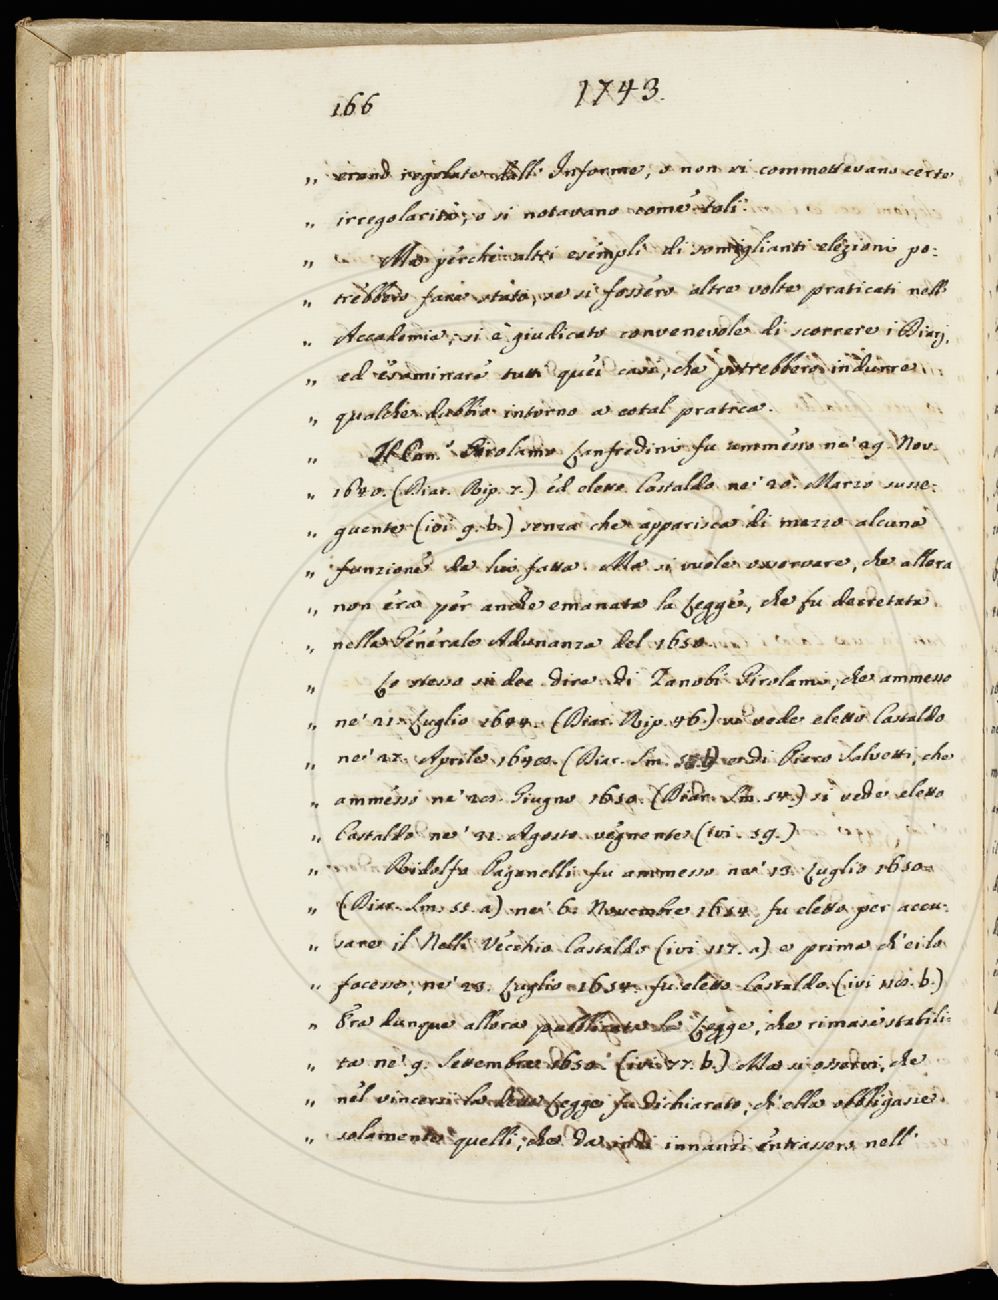 166 1743.
„ erano regolate dall' Informe, o non vi commettevano certe
„ irregolarità, o si notavano come tali.
„ Ma perchè altri esempli di somiglianti elezioni po-
„ trebbero fare stato, se si fossero altre volte praticati nell'
„ Accademia; si è giudicato convenevole di scorrere i Diarj,
„ ed esaminare tutti quei casi, che potrebbero indurre
„ qualche dubbio intorno a cotal pratica.
„ Il Can.co Girolamo Lanfredini fu ammesso ne' 29. Nov.
„ 1640. (Diar. Rip. 7.) ed eletto Castaldo ne' 20. Marzo susse-
„ guente (ivi 9. b.) senza che apparisca di mezzo alcuna
„ funzione da lui fatta. Ma si vuole osservare, che allora
„ non era per anche emanata la Legge, che fu decretata
„ nella Generale Adunanza del 1650.
„ Lo stesso si dee dire di Zanobi Girolami, che ammesso
„ ne' 21. Luglio 1644. (Diar. Rip. 46.) si vede eletto Castaldo
„ ne' 27. Aprile (Diar. Sm. e di Piero Salvetti, che
„ ammesso ne' 20. Giugno 1650. (Diar. Sm. 54.) si vede eletto
„ Castaldo ne' 31. Agosto vegnente (ivi. 59.)
„ Ridolfo Paganelli fu ammesso ne' 13. Luglio 1650.
„ (Diar. Sm. 55. a) ne' 6. Novembre 1654. fu eletto per accu-
„ sare il Nelli Vecchio Castaldo (ivi 117. a) e prima ch'ei lo
„ facesse, ne' 23. Luglio 1654. fu eletto Castaldo. (ivi b.)
„ Era dunque allora pubblicata la Legge, che rimase stabili-
„ ta ne' 9. Settembre 1650. (ivi 77. b.) Ma si osservi, che
„ nel vincersi la detta Legge fu dichiarato, ch'ella obbligasse
„ solamente quelli, che da indi innanzi entrassero nell'